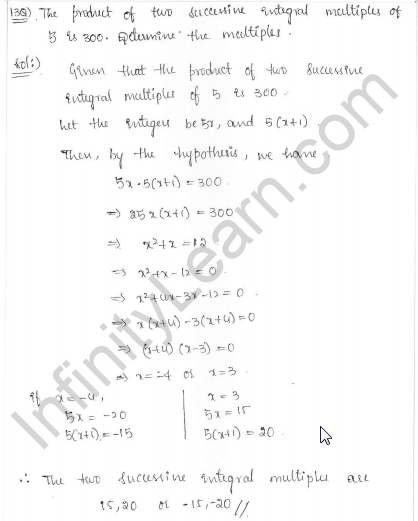 13Q) The product of two successive integral multiples of
5 is 300. Determine the multiples.
Sol:) Given that the product of two successive
integral multiples of 5 is 300.
Let the integers be 5x, and 5(x+1)
Then, by the hypothesis, we have
5x·5(x+1) = 300
⇒ 25x(x+1) = 300
⇒ x²+x = 12
⇒ x²+x-12 = 0
⇒ x²+4x-3x-12 = 0
⇒ x(x+4)-3(x+4)=0
⇒ (x+4) (x-3) = 0
⇒ x = -4 or x = 3.
if x = -4, x = 3
5x = -20 5x = 15
5(x+1) = -15 5(x+1) = 20
∴ The two successive integral multiples are
15, 20 or -15, -20 //
InfinityLearn.com